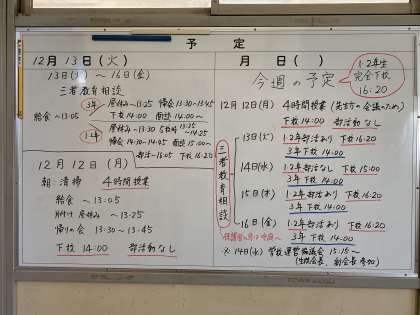 予定
12月13日(火)
13日(火)～16日(金)
三者教育相談
給食～13:05
3年
昼休み～13:25 帰会 13:30~13:45
下校 14:00 面談 14:00~
1·2年
昼休み～13:30 5校時 13:35~14:25
帰会 14:30~14:45 面談 15:00~
部活~16:05 下校 16:20
12月12日(月)
朝:清掃 4時間授業
給食 ～13:05
片付け 昼休み ～13:25
帰りの会 13:30～13:45
下校 14:00 部活動なし
月 日( )
今週の予定
1·2年生
完全下校
16:20
12月12日(月) 4時間授業(先生方の会議のため)
下校 14:00 部活動なし
三者教育相談
13日(火) 1·2年部活あり 下校 16:20
3年 下校 14:00
14日(水) 1·2年部活なし 下校 15:00
3年 下校 14:00
15日(木) 1·2年部活あり 下校 16:20
3年 下校 14:00
~16日(金) 1·2年部活あり 下校 16:20
3年 下校 14:00
※14日(水) 学校運営協議会 15:15~
(生徒会長、副会長 参加)